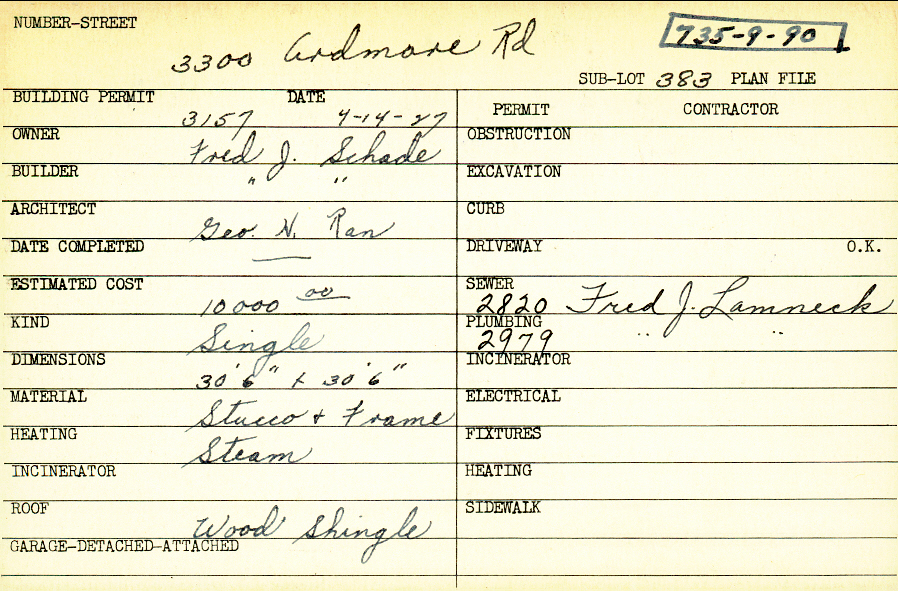 NUMBER-STREET
3300 Ardmore Rd
735-9-90
SUB-LOT 383 PLAN FILE
BUILDING PERMIT DATE
3157 4-14-27
PERMIT CONTRACTOR
OWNER
Fred J. Schade
OBSTRUCTION
BUILDER
" "
EXCAVATION
ARCHITECT
Geo. H. Rau
CURB
DATE COMPLETED
—
DRIVEWAY O.K.
ESTIMATED COST
10000 00
SEWER
2820 Fred J. Lamneck
KIND
Single
PLUMBING
2979 " "
DIMENSIONS
30'6" x 30'6"
INCINERATOR
MATERIAL
Stucco + Frame
ELECTRICAL
HEATING
Steam
FIXTURES
INCINERATOR
HEATING
ROOF
Wood Shingle
SIDEWALK
GARAGE-DETACHED-ATTACHED